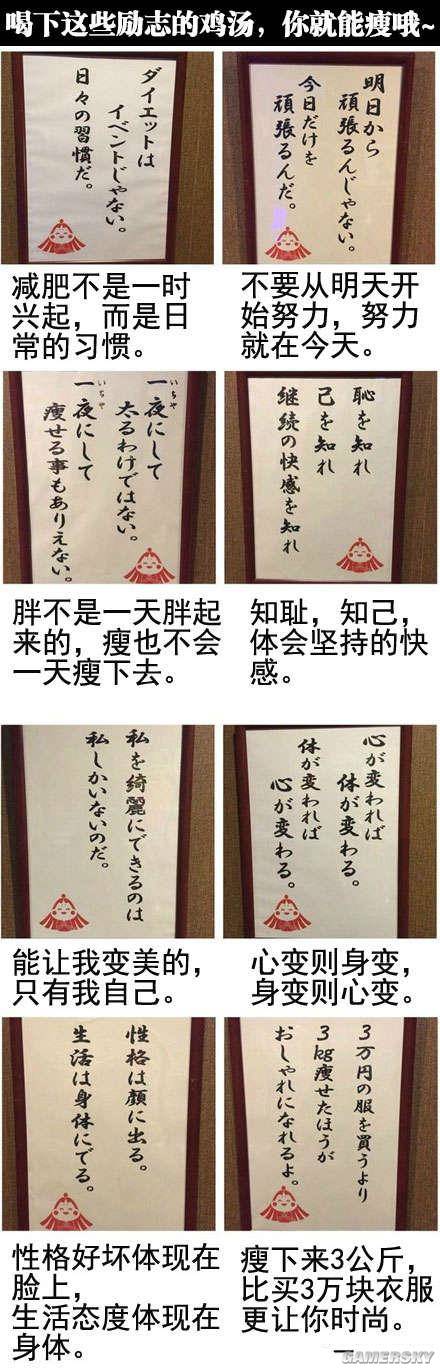 喝下这些励志的鸡汤，你就能瘦哦~
ダイエットは
イベントじゃない。
日々の習慣だ。
减肥不是一时
兴起，而是日
常的习惯。
明日から
頑張るんじゃない。
今日だけを
頑張るんだ。
不要从明天开
始努力，努力
就在今天。
いちや
一夜にして
太るわけではない。
いちや
一夜にして
痩せる事もありえない。
胖不是一天胖起
来的，瘦也不会
一天瘦下去。
恥を知れ
己を知れ
継続の快感を知れ
知耻，知己，
体会坚持的快
感。
私を綺麗にできるのは
私しかいないのだ。
能让我变美的，
只有我自己。
心が変われば
体が変わる。
体が変われば
心が変わる。
心变则身变，
身变则心变。
性格は顔に出る。
生活は身体にでる。
性格好坏体现在
脸上，
生活态度体现在
身体。
3万円の服を買うより
3kg痩せたほうが
おしゃれになれるよ。
瘦下来3公斤，
比买3万块衣服
更让你时尚。
GAMERSKY